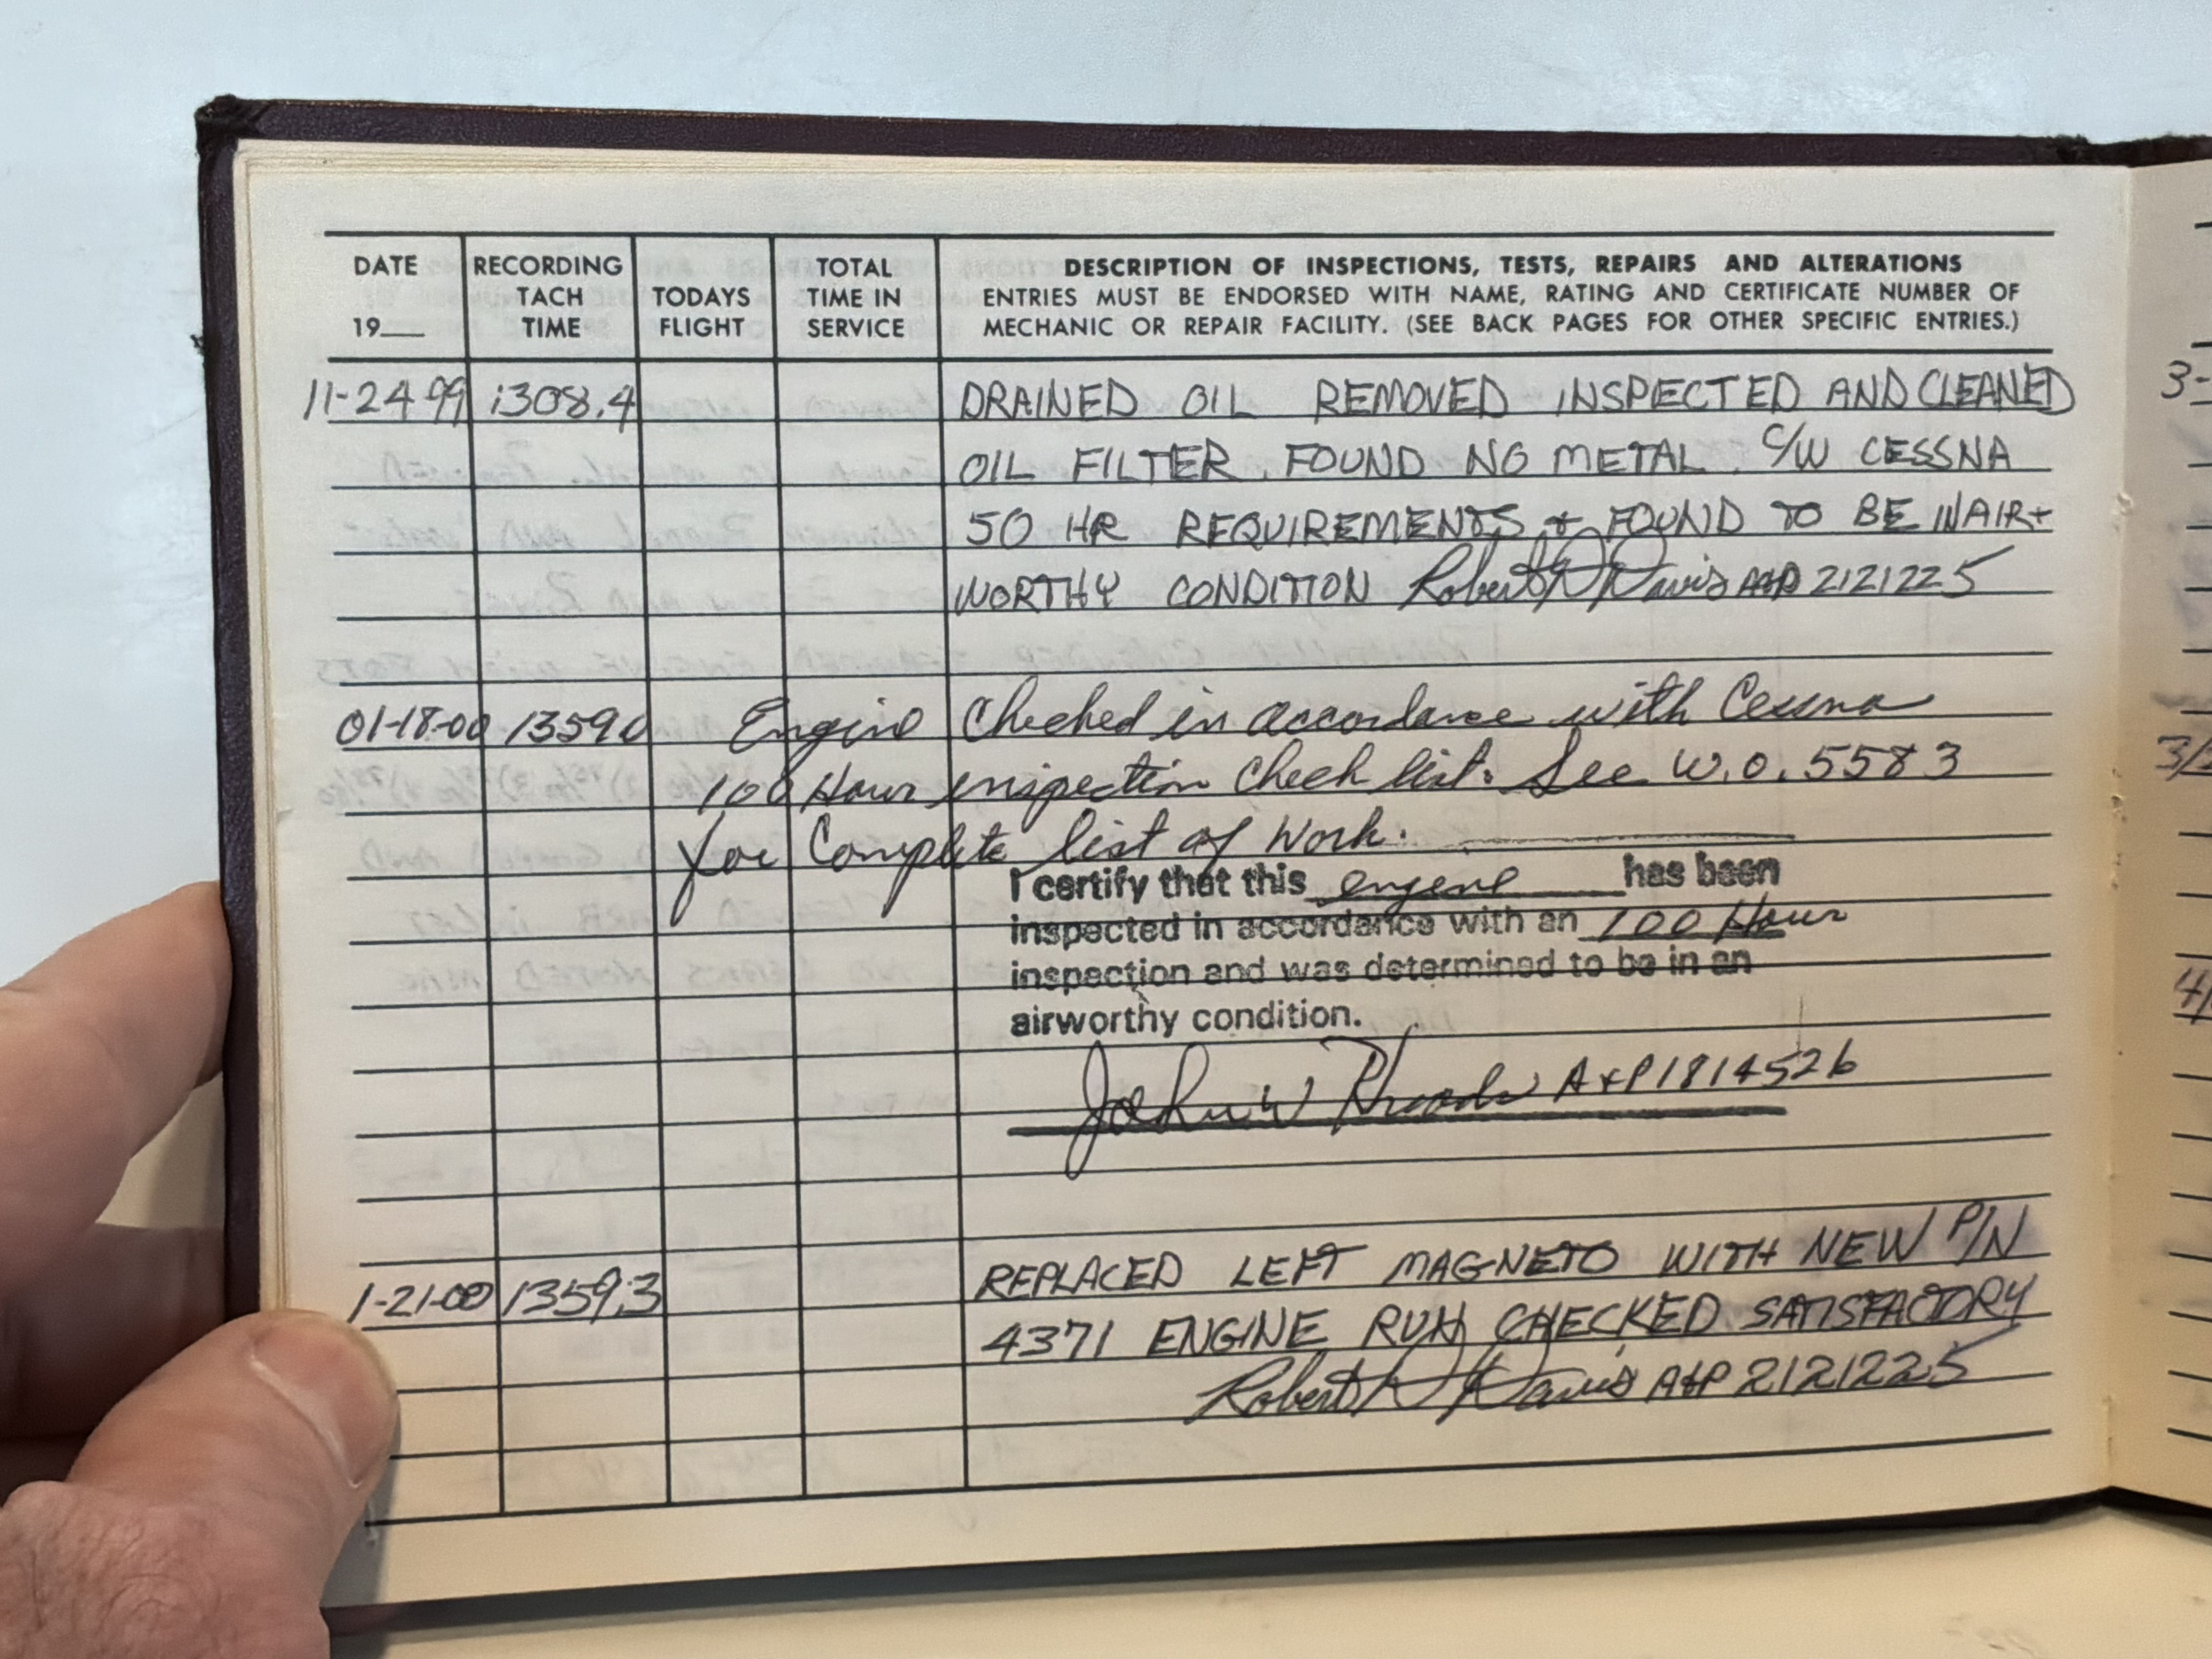 DATE RECORDING TODAYS TOTAL DESCRIPTION OF INSPECTIONS, TESTS, REPAIRS AND ALTERATIONS
TACH FLIGHT TIME IN ENTRIES MUST BE ENDORSED WITH NAME, RATING AND CERTIFICATE NUMBER OF
19__ TIME SERVICE MECHANIC OR REPAIR FACILITY. (SEE BACK PAGES FOR OTHER SPECIFIC ENTRIES.)
11-24 99 1308.4 DRAINED OIL REMOVED INSPECTED AND CLEANED
OIL FILTER. FOUND NO METAL. C/W CESSNA
50 HR REQUIREMENTS & FOUND TO BE IN AIR
WORTHY CONDITION Robert Davis A&P 2121225
01-18-00 1359.0 Engine Checked in accordance with Cessna
100 Hour inspection Check list. See W.O. 5583
for Complete list of Work.
I certify that this engine has been
inspected in accordance with an 100 Hour
inspection and was determined to be in an
airworthy condition.
John W A&P 1814526
1-21-00 1359.3 REPLACED LEFT MAGNETO WITH NEW P/N
4371 ENGINE RUN CHECKED SATISFACTORY
Robert Davis A&P 2121225